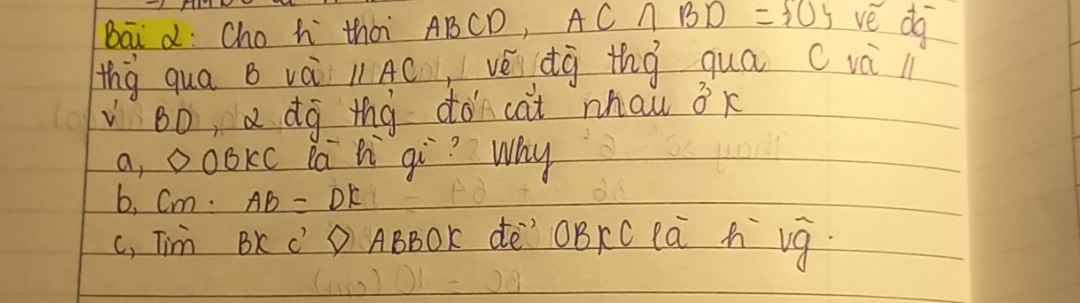 Bài 2: Cho h̀ thoi ABCD, AC ∩ BD = {O} vẽ đg̃
thg̉ qua B và // AC, vẽ đg̃ thg̉ qua C và //
v́ BD, 2 đg̃ thg̉ đó cắt nhau ở K
a, ◇ OBKC là h̀ gì? Why
b, Cm: AB = DK
c, Tìm BK c̉ ◇ ABBOK để OBKC là h̀ vg̃.